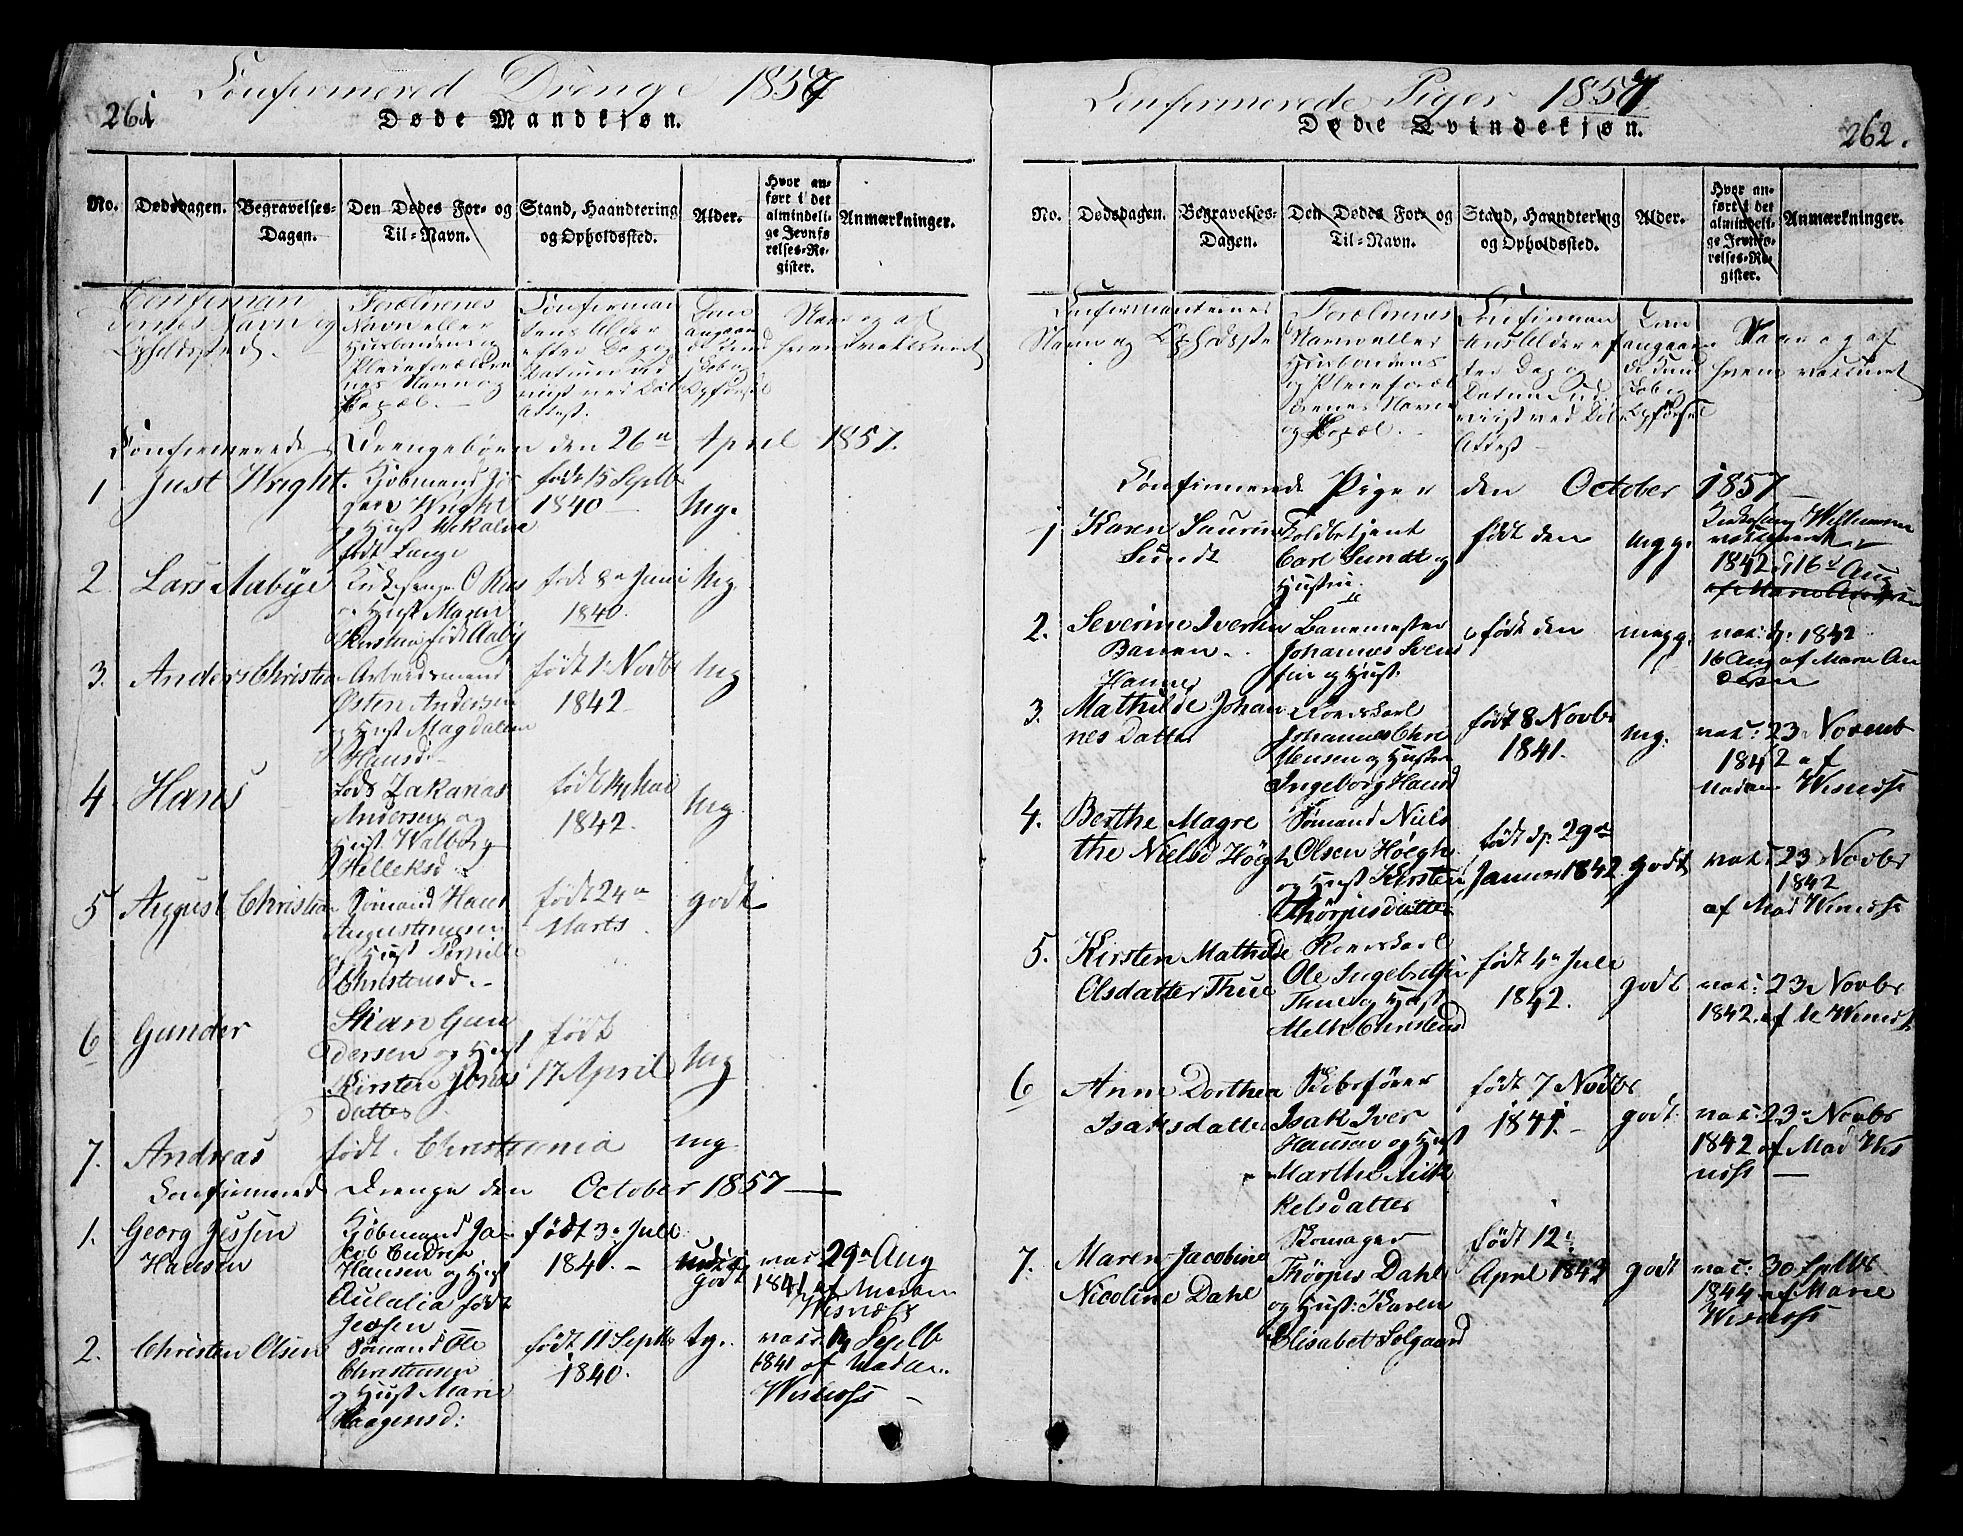 Confirmered Drenge 1857
261
Døde Mandkjøn.
No. Dødsdagen. Begravelses-Dagen. Den Dødes For- og Til-Navn. Stand, Haandtering og Opholdssted. Alder. Hvor anført i det almindelige Jevnførelses-Register. Anmærkninger.
Confirmanternes Navn og Opholdssted.
Forældrenes Navn eller Husbondens og Pleieforældrenes Navn og Bopæl.
Confirmandens Alder efter Dag og Datum
Dom angaaende Kundskab og Opførsel
Naar og af hvem vaksineret
Confirmerede Drengebørn den 26de April 1857.
1 Just Wright.
Kjøbmand
Wright
og Hust
født Lange
født 15 Septb
1840
Mg.
2. Lars Aabye
Kirkesanger O
og Hust Maren
født Aaby
født 8de Juni
1840.
Mg
3. Anders Christen
Arbeidsmand
Østen Andersen
og Hust Magdalene
Hansd.
født 1ste Novbr
1842
Mg
4 Hans
Lods Zakarias
Andersen og
Hust Walborg
Helleksd.
født 14 Mai
1842.
Mg
5 August Christian
Sømand Hans
Augustinusen
og Hust Pernille
Christensd.
født 24de
Marts.
godt
6 Gunder
Kian Gun
dersen og Hust
Kirsten Jonas
datter
født
17 April
Mg
7. Andreas
født. Christiania
mg
Confirmered Drenge den October 1857
1. Georg Jessen
Hansen
Kjøbmand Ja-
cob Endresen
Hansen og Hust
Aulalia født
Jessen
født 3de Juli
1841.
godt
vac 29de Aug
1841 af Madam
Wisnæss
2. Christen Olsen
Sømand Ole
Christensen
og Hust Marie
Haagensd:
født 11 Septb
1840.
tg.
vacc 14 Septb
1841 af Madam
Wisnæss
Confirmerede Piger 1857
262.
Døde Qvindekjøn.
No. Dødsdagen. Begravelses-Dagen. Den Dødes For- og Til-Navn. Stand, Haandtering og Opholdssted. Alder. Hvor anført i det almindelige Jevnførelses-Register. Anmærkninger.
Confirmanternes
Navn og Opholdsste
Forældrenes
Navn eller
Husbondens
og Pleieforæl
drenes Navne
og Bopæl.
Confirman
tens Alder ef
ter Dag og
Datum
Attest
Dom
angaaen
de Kund
skab og
Opførsel
Naar og af
hvem vaksineret
Confirmerede Piger den October 1857
1 Karen Laurine
Sundt
Toldbetjent
Carl Sundt og
Hustru
født den
mgg.
Kirkesang Willumsen
1842 d 16de Aug
2. Severine Iversen
Banen
Banemester
Johannes Svend
sen og Hust.
født den
megg.
vac: d: 1842
16 Aug af Maren An
dersen
3. Hanne
Mathilde Johan
nes datter
Roerskarl
Johannes Chri
stensen og Hustru
Ingeborg Hansd
født 8 Novbr
1841.
Mg.
vac: 23de Novemb
1842 af
Madam Wisnæss
4. Berthe Magre
the Nielsd Høgh
Sømand Niels
Olsen Høegh
og Hust Kirsten
Thorjusdatter
født d. 29de
Januar 1842
godt
vac: 23 Novbr
1842
af Mad Wisnæss
5. Kirsten Mathilde
Olsdatter Thue
Roerskarl
Ole Ingebretsen
Thue og Hust
Christensd
født 4de Juli
1842.
godt
vac: 23 Novbr
1842. af M Wisnæss
6 Anne Dorthea
Isaksdatter
Skibsfører
Isak Iver
Hansen og Hust
Marthe Mik
kelsdatter
født 7 Novbr
1841.
godt.
vac: 23de Novbr
1842 af Mad Wis
næss
7. Maren Jacobine
Nicoline Dahl
Skomager
Thorjus Dahl
og Hust: Karen
Elisabet Solgaard
født 12te
April 1842
godt
vac: 30 Septbr
1844 af Marie
Wisnæss